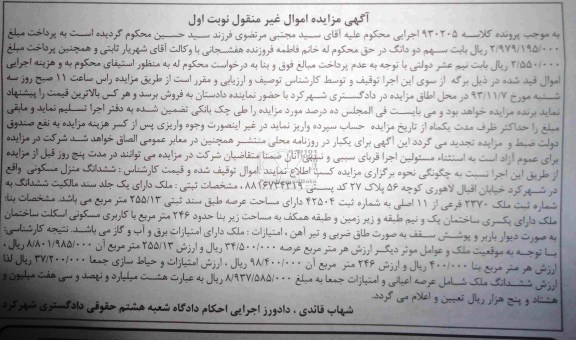 آگهی مزایده اموال غیر منقول نوبت اول
به موجب پرونده کلاسه ۹۳۰۲۰۵ اجرایی محکوم علیه آقای سید مجتبی مرتضوی فرزند سید حسین محکوم گردیده است به پرداخت مبلغ
۲/۹۷۹/۱۹۵/۰۰۰ ریال بابت سهم دو دانگ در حق محکوم له خانم فاطمه فروزنده هفشجانی با وکالت آقای شهریار ثابتی و همچنین پرداخت مبلغ
۲/۵۵۰/۰۰۰ ریال بابت نیم عشر دولتی با توجه به عدم پرداخت مبالغ فوق و بنا به درخواست محکوم له به منظور استیفای محکوم به و هزینه اجرایی
اموال قید شده در ذیل برگه از سوی این اجرا توقیف و توسط کارشناس توصیف و ارزیابی و مقرر است از طریق مزایده راس ساعت ۱۱ صبح روز سه
شنبه مورخ ۹۳/۱۱/۷ در محل اطاق مزایده در دادگستری شهرکرد با حضور نماینده دادستان به فروش برسد و هر کس بالاترین قیمت را پیشنهاد
نماید برنده مزایده خواهد بود و می بایست فی المجلس ده درصد مورد مزایده را طی چک بانکی تضمین شده به دفتر اجرا تسلیم نماید و مابقی
مبلغ را حداکثر ظرف مدت یکماه از تاریخ مزایده حساب سپرده واریز نماید در غیر اینصورت وجوه واریزی پس از کسر هزینه مزایده به نفع صندوق
دولت ضبط و مزایده تجدید می گردد این آگهی برای یکبار در روزنامه محلی منتشر همچنین در معابر عمومی الصاق خواهد شد شرکت در مزایده
برای عموم آزاد است به استثناء مسئولین اجرا قربای سببی و نسبی آنان ضمنا متقاضیان شرکت در مزایده می توانند در مدت پنج روز قبل از مزایده
از طریق این اجرا نسبت به چگونگی نحوه برگزاری مزایده کسب اطلاع نمایند. اموال توقیف شده و قیمت کارشناس : ششدانگ منزل مسکونی واقع
در شهرکرد خیابان اقبال لاهوری کوچه ۵۶ پلاک ۲۷ کد پستی ۸۸۱۶۷۳۴۳۱۹، مشخصات ثبتی : ملک دارای یک جلد سند مالکیت ششدانگ به
شماره ثبت ملک ۲۳۷۰ فرعی از ۱۱ اصلی به شماره ثبت ۴۲۵۰۴ دارای مساحت عرصه طبق سند ثبتی ۲۵۵/۱۳ متر مربع می باشد. مشخصات بنا:
ملک دارای یکسری ساختمان یک و نیم طبقه و زیر زمین و طبقه همکف به مساحت زیر بنا حدود ۲۴۶ متر مربع با کاربری مسکونی اسکلت ساختمان
به صورت دیوار باربر و پوشش سقف به صورت طاق ضربی و تیر آهن ، امتیازات : ملک دارای امتیازات برق و آب و گاز می باشد. نتیجه کارشناسی:
با توجه به موقعیت ملک و عوامل موثر دیگر ارزش هر متر مربع عرصه ۳۴/۵۰۰/۰۰۰ ریال و ارزش ۲۵۵/۱۳ متر مربع آن ۸/۸۰۱/۹۸۵/۰۰۰ ریال ،
ارزش هر متر مربع بنا ۴۰۰/۰۰۰ ریال و ارزش ۲۴۶ متر مربع آن ۹۸/۴۰۰/۰۰۰ ریال ، ارزش امتیازات و حیاط سازی جمعا ۳۷/۲۰۰/۰۰۰ ریال لذا
ارزش ششدانگ ملک شامل عرصه اعیانی و امتیازات جمعا به مبلغ ۸/۹۳۷/۵۸۵/۰۰۰ ریال به عبارت هشت میلیارد و نهصد و سی هفت میلیون و
هشتاد و پنج هزار ریال تعیین و اعلام می گردد.
شهاب قائدی ، دادورز اجرایی احکام دادگاه شعبه هشتم حقوقی دادگستری شهرکرد